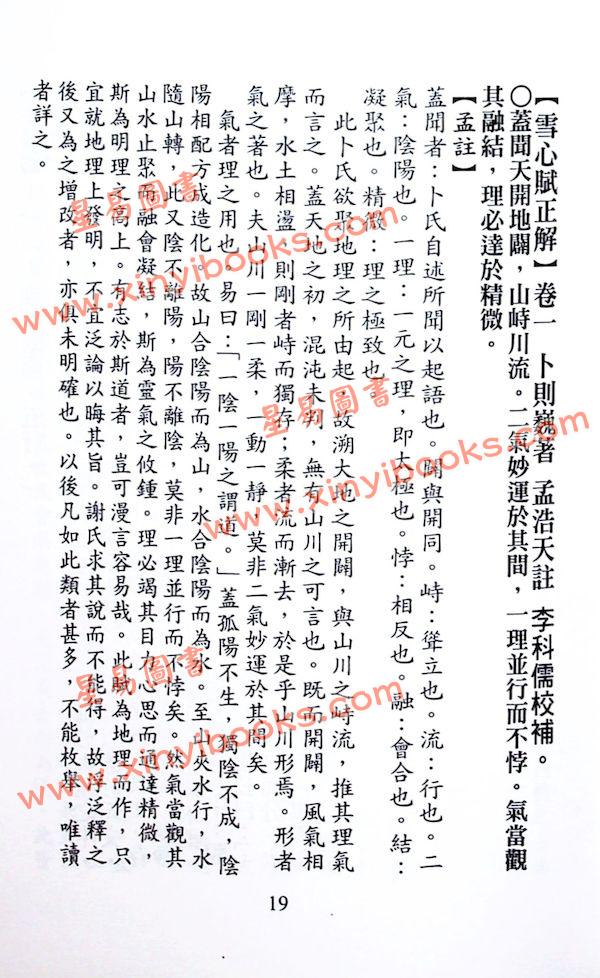 【雪心賦正解】卷一 卜則巍著 孟浩天註 李科儒校補。
〇蓋聞天開地闢，山峙川流。二氣妙運於其間，一理並行而不悖。氣當觀
其融結，理必達於精微。
【孟註】
蓋聞者：卜氏自述所聞以起語也。闢與開同。峙：聳立也。流：行也。二
氣：陰陽也。一理：一元之理，即太極也。悖：相反也。融：會合也。結：
凝聚也。精微：理之極致也。
此卜氏欲聚地理之所由起，故溯大地之開闢，與山川之峙流，推其理氣
而言之。蓋天地之初，混沌未判，無有山川之可言也。既而開闢，風氣相
摩，水土相盪，則剛者峙而獨存；柔者流而漸去，於是乎山川形焉。形者
氣之著也。夫山川一剛一柔，一動一靜，莫非二氣妙運於其間矣。
氣者理之用也。易曰：「一陰一陽之謂道。」蓋孤陽不生，獨陰不成，陰
陽相配方成造化。故山合陰陽而為山，水合陰陽而為水。至山夾水行，水
隨山轉，此又陰不離陽，陽不離陰，莫非一理並行而不悖矣。然氣當觀其
山水止聚而融會凝結，斯為靈氣之攸鍾。理必竭其目力心思而通達精微，
斯為明理之高上。有志於斯道者，豈可漫言容易哉。此賦為地理而作，只
宜就地理上發明，不宜泛論以晦其旨。謝氏求其說而不能得，故浮泛釋之
後又為之增改者，亦俱未明確也。以後凡如此類者甚多，不能枚舉，唯讀
者詳之。
19
星易圖書
www.xinyibooks.com
星易圖書
www.xinyibooks.com
星易圖書
www.xinyibooks.com